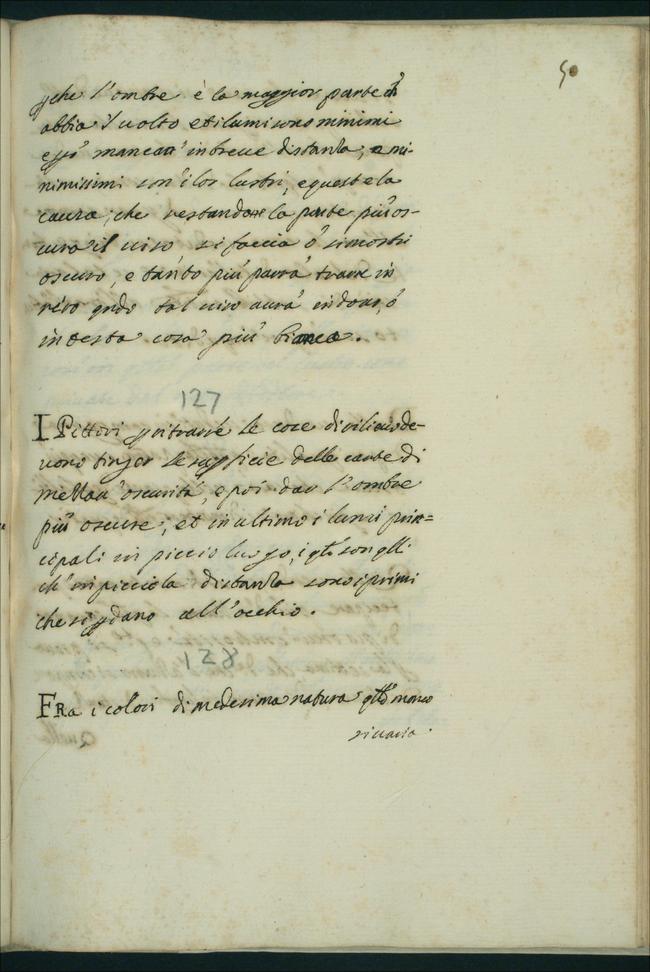 50
pche l'ombre è la maggior parte ch'
abbia 'l uolto et i lumi sono minimi
e pò mancan' in breue distanza, e mi-
nimissimi son' i lor lustri, e quest e la
causa, che restandoui la parte più os-
cura il uiso si faccia ò si mostri
oscuro, e tanto più parrà trarre in
nero qndo tal uiso aurà in dosso, ò
in testa cosa più bianca.
127
I Pittori p ritrarre le cose di rilieuo de-
uono tinger le supficie delle carte di
mezzan' oscurità, e poi dar l'ombre
più oscure, et in ultimo i lumi prin=
cipali in piccio luogo, i qli son qlli
ch' in picciola distanza sono i primi
che si pdano all'occhio.
128
FRa i colori di medesima natura qllo manco
si uaria.